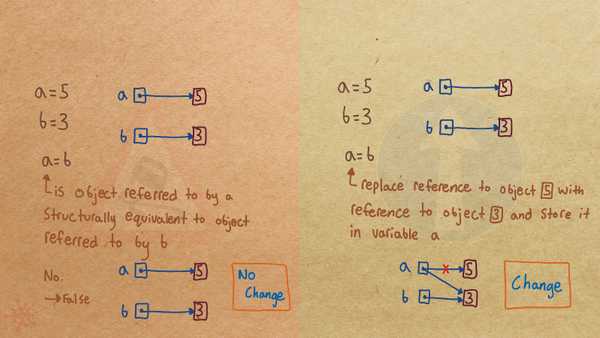 a=5
b=3
a=b
a
5
b
3
is object referred to by a
structurally equivalent to object
referred to by b
No.
→False
a
5
b
3
No
Change
a=5
b=3
a=b
a
5
b
3
replace reference to object 5 with
reference to object 3 and store it
in variable a
a
5
b
3
Change